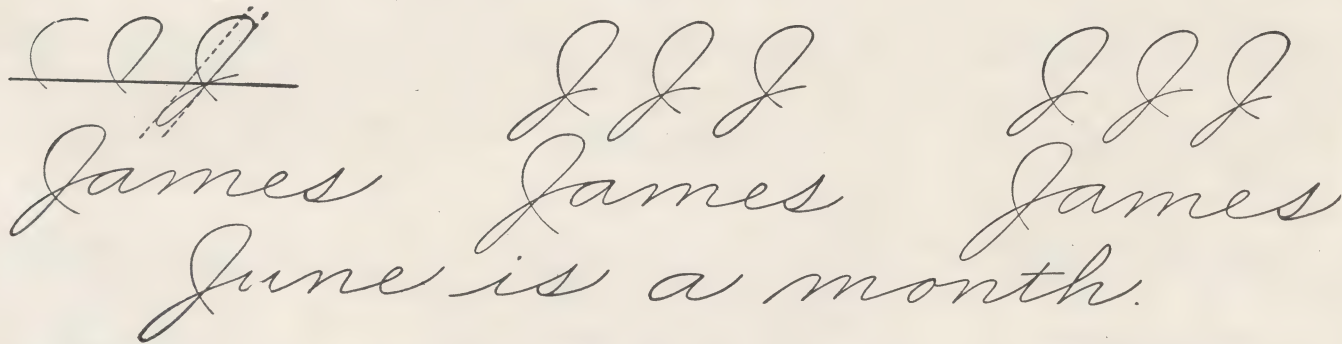 J J J J J J J
James James James
June is a month.